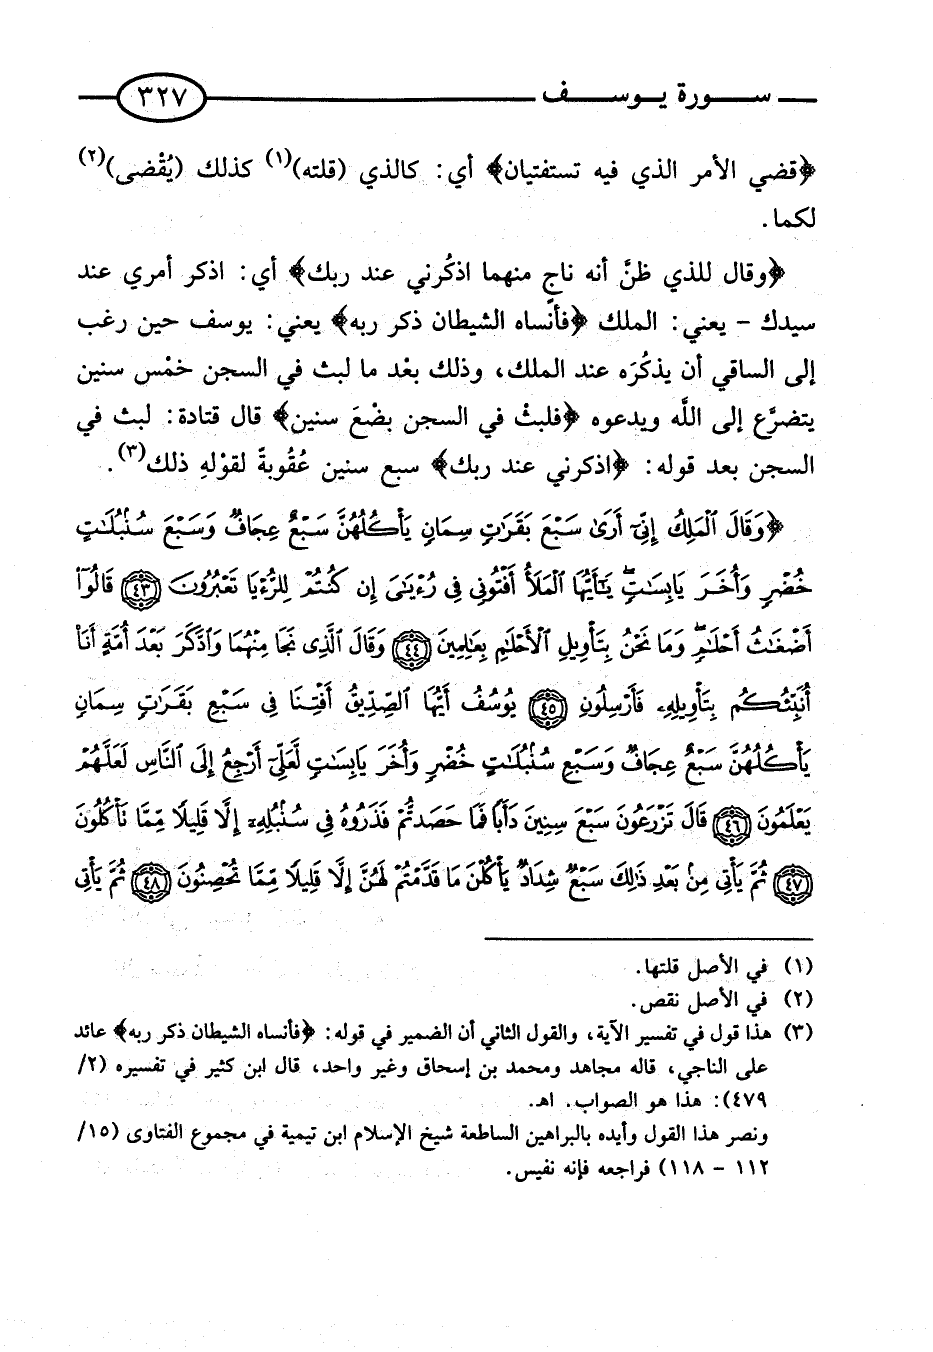 سورة يوسف ٣٢٧
﴿قضي الأمر الذي فيه تستفتيان﴾ أي: كالذي (قلته)(١) كذلك (يُقْضى)(٢)
لكما.
﴿وقال للذي ظنَّ أنه ناجٍ منهما اذكُرني عند ربك﴾ أي: اذكر أمري عند
سيدك - يعني: الملك ﴿فأنْساه الشيطان ذكر ربه﴾ يعني: يوسف حين رغب
إلى الساقي أن يذكُرَه عند الملك، وذلك بعْد ما لبث في السجن خمْس سنين
يتضرَّع إلى اللَّه ويدعوه ﴿فلبثْ في السجن بضْعَ سنين﴾ قال قتادة: لبث في
السجن بعد قوله: ﴿اذكرني عند ربك﴾ سبع سنين عُقُوبةً لقوْلهِ ذلك(٣).
﴿وَقَالَ ٱلْمَلِكُ إِنِّىٓ أَرَىٰ سَبْعَ بَقَرَٰتٍ سِمَانٍ يَأْكُلُهُنَّ سَبْعٌ عِجَافٌ وَسَبْعَ سُنۢبُلَٰتٍ
خُضْرٍ وَأُخَرَ يَابِسَٰتٍ ۖ يَٰٓأَيُّهَا ٱلْمَلَأُ أَفْتُونِى فِى رُءْيَٰىَ إِن كُنتُمْ لِلرُّءْيَا تَعْبُرُونَ ٤٣ قَالُوٓا۟
أَضْغَٰثُ أَحْلَٰمٍ ۖ وَمَا نَحْنُ بِتَأْوِيلِ ٱلْأَحْلَٰمِ بِعَٰلِمِينَ ٤٤ وَقَالَ ٱلَّذِى نَجَا مِنْهُمَا وَٱدَّكَرَ بَعْدَ أُمَّةٍ أَنَا۠
أُنَبِّئُكُم بِتَأْوِيلِهِۦ فَأَرْسِلُونِ ٤٥ يُوسُفُ أَيُّهَا ٱلصِّدِّيقُ أَفْتِنَا فِى سَبْعِ بَقَرَٰتٍ سِمَانٍ
يَأْكُلُهُنَّ سَبْعٌ عِجَافٌ وَسَبْعِ سُنۢبُلَٰتٍ خُضْرٍ وَأُخَرَ يَابِسَٰتٍ لَّعَلِّىٓ أَرْجِعُ إِلَى ٱلنَّاسِ لَعَلَّهُمْ
يَعْلَمُونَ ٤٦ قَالَ تَزْرَعُونَ سَبْعَ سِنِينَ دَأَبًا فَمَا حَصَدتُّمْ فَذَرُوهُ فِى سُنۢبُلِهِۦٓ إِلَّا قَلِيلًا مِّمَّا تَأْكُلُونَ
٤٧ ثُمَّ يَأْتِى مِنۢ بَعْدِ ذَٰلِكَ سَبْعٌ شِدَادٌ يَأْكُلْنَ مَا قَدَّمْتُمْ لَهُنَّ إِلَّا قَلِيلًا مِّمَّا تُحْصِنُونَ ٤٨ ثُمَّ يَأْتِى
(١) في الأصل قلتها.
(٢) في الأصل نقص.
(٣) هذا قول في تفسير الآية، والقول الثاني أن الضمير في قوله: ﴿فأنساه الشيطان ذكر ربه﴾ عائد
على الناجي، قاله مجاهد ومحمد بن إسحاق وغير واحد، قال ابن كثير في تفسيره (٢/
٤٧٩): هذا هو الصواب. اهـ.
ونصر هذا القول وأيده بالبراهين الساطعة شيخ الإسلام ابن تيمية في مجموع الفتاوى (١٥/
١١٢ - ١١٨) فراجعه فإنه نفيس.